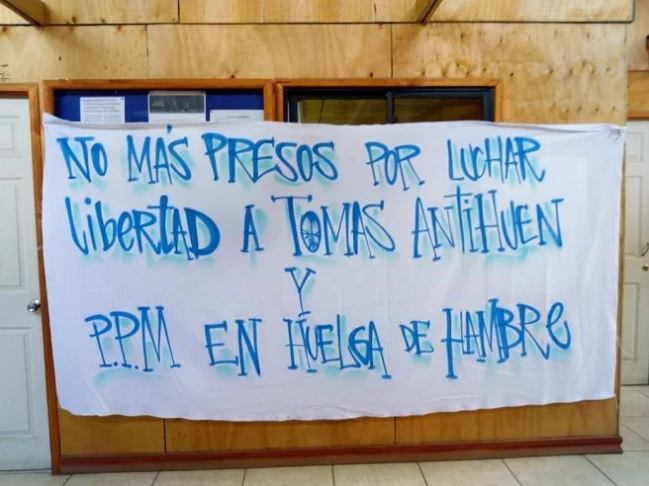 NO MÁS PRESOS POR LUCHAR
libertad A TOMAS ANTIHUEN
Y
P.P.M EN HUELGA DE HAMBRE